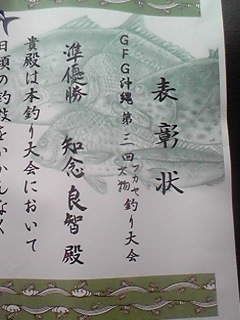 表彰状
GFG沖縄 第三回フカセ釣り大会
大物
準優勝 知念良智殿
貴殿は本釣り大会において
日頃の釣技をいかんなく